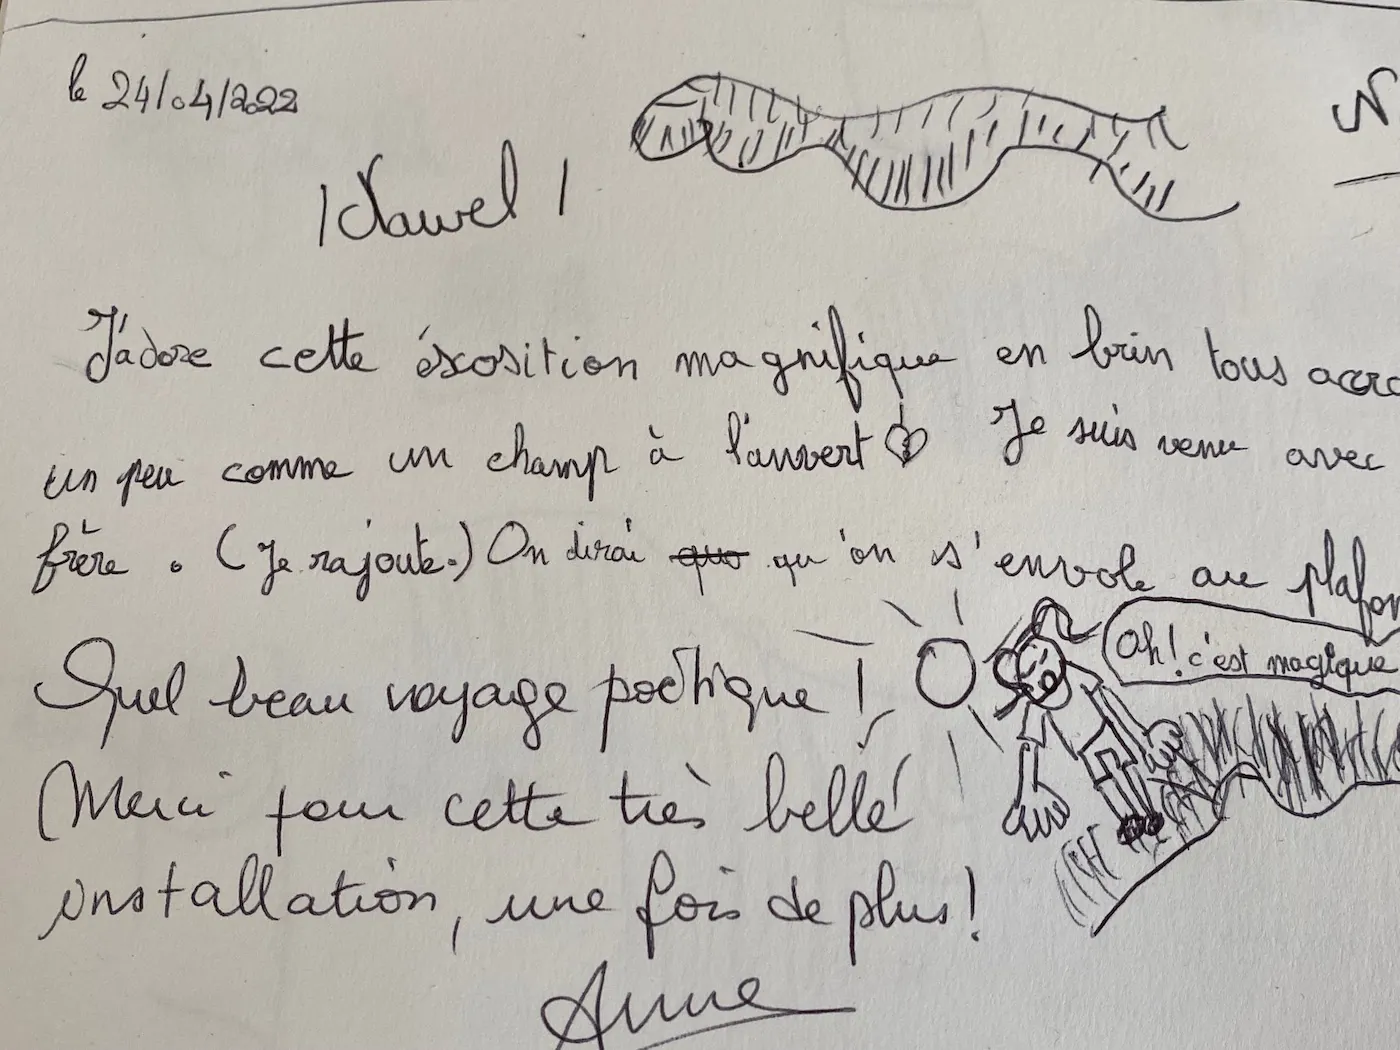 le 24/04/2022
/Nawel/
N
J'adore cette éxosition magnifique en brin tous accro
un peu comme un champ à l'anvert Je suis venu avec
frère. (Je rajoute.) On dirai que qu'on s'envole au plafon
Oh! c'est magique
Quel beau voyage poétique !
Merci pour cette très belle
installation, une fois de plus!
Anne